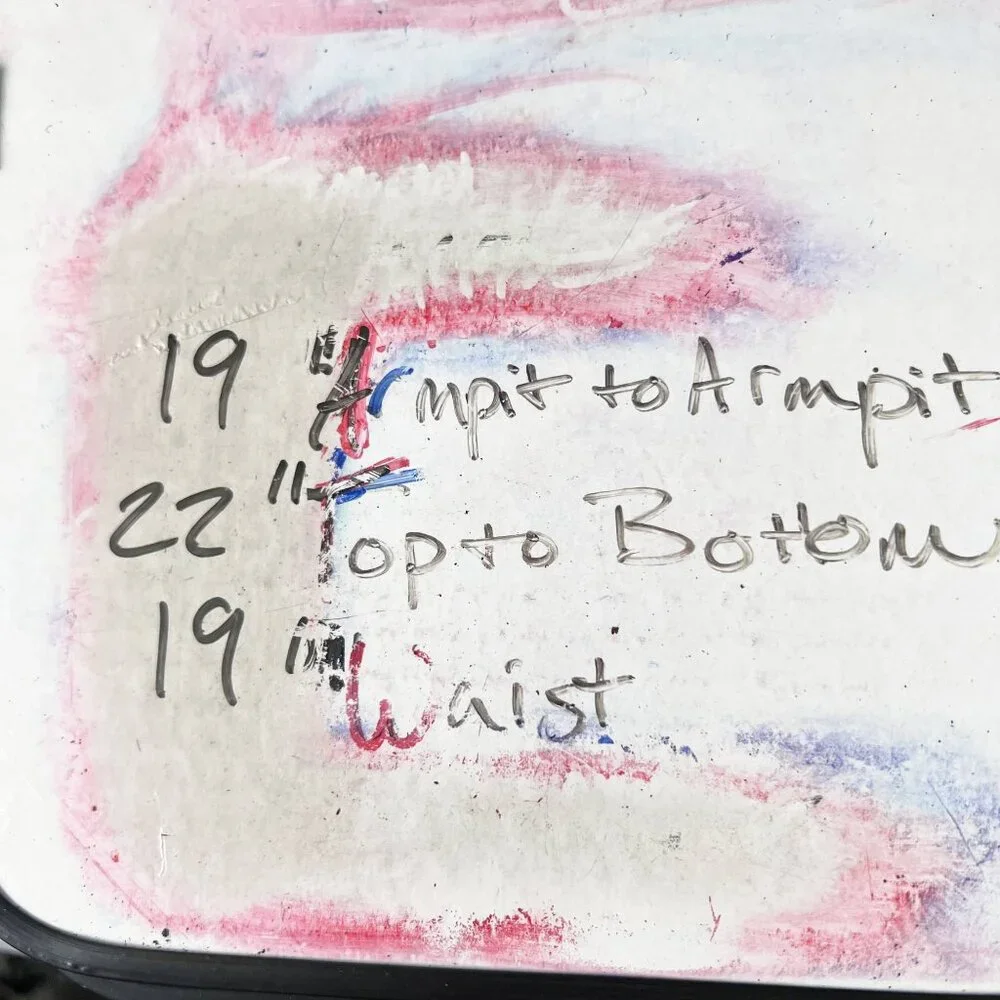 19 "Armpit to Armpit
22 "Top to Bottom
19 "Waist